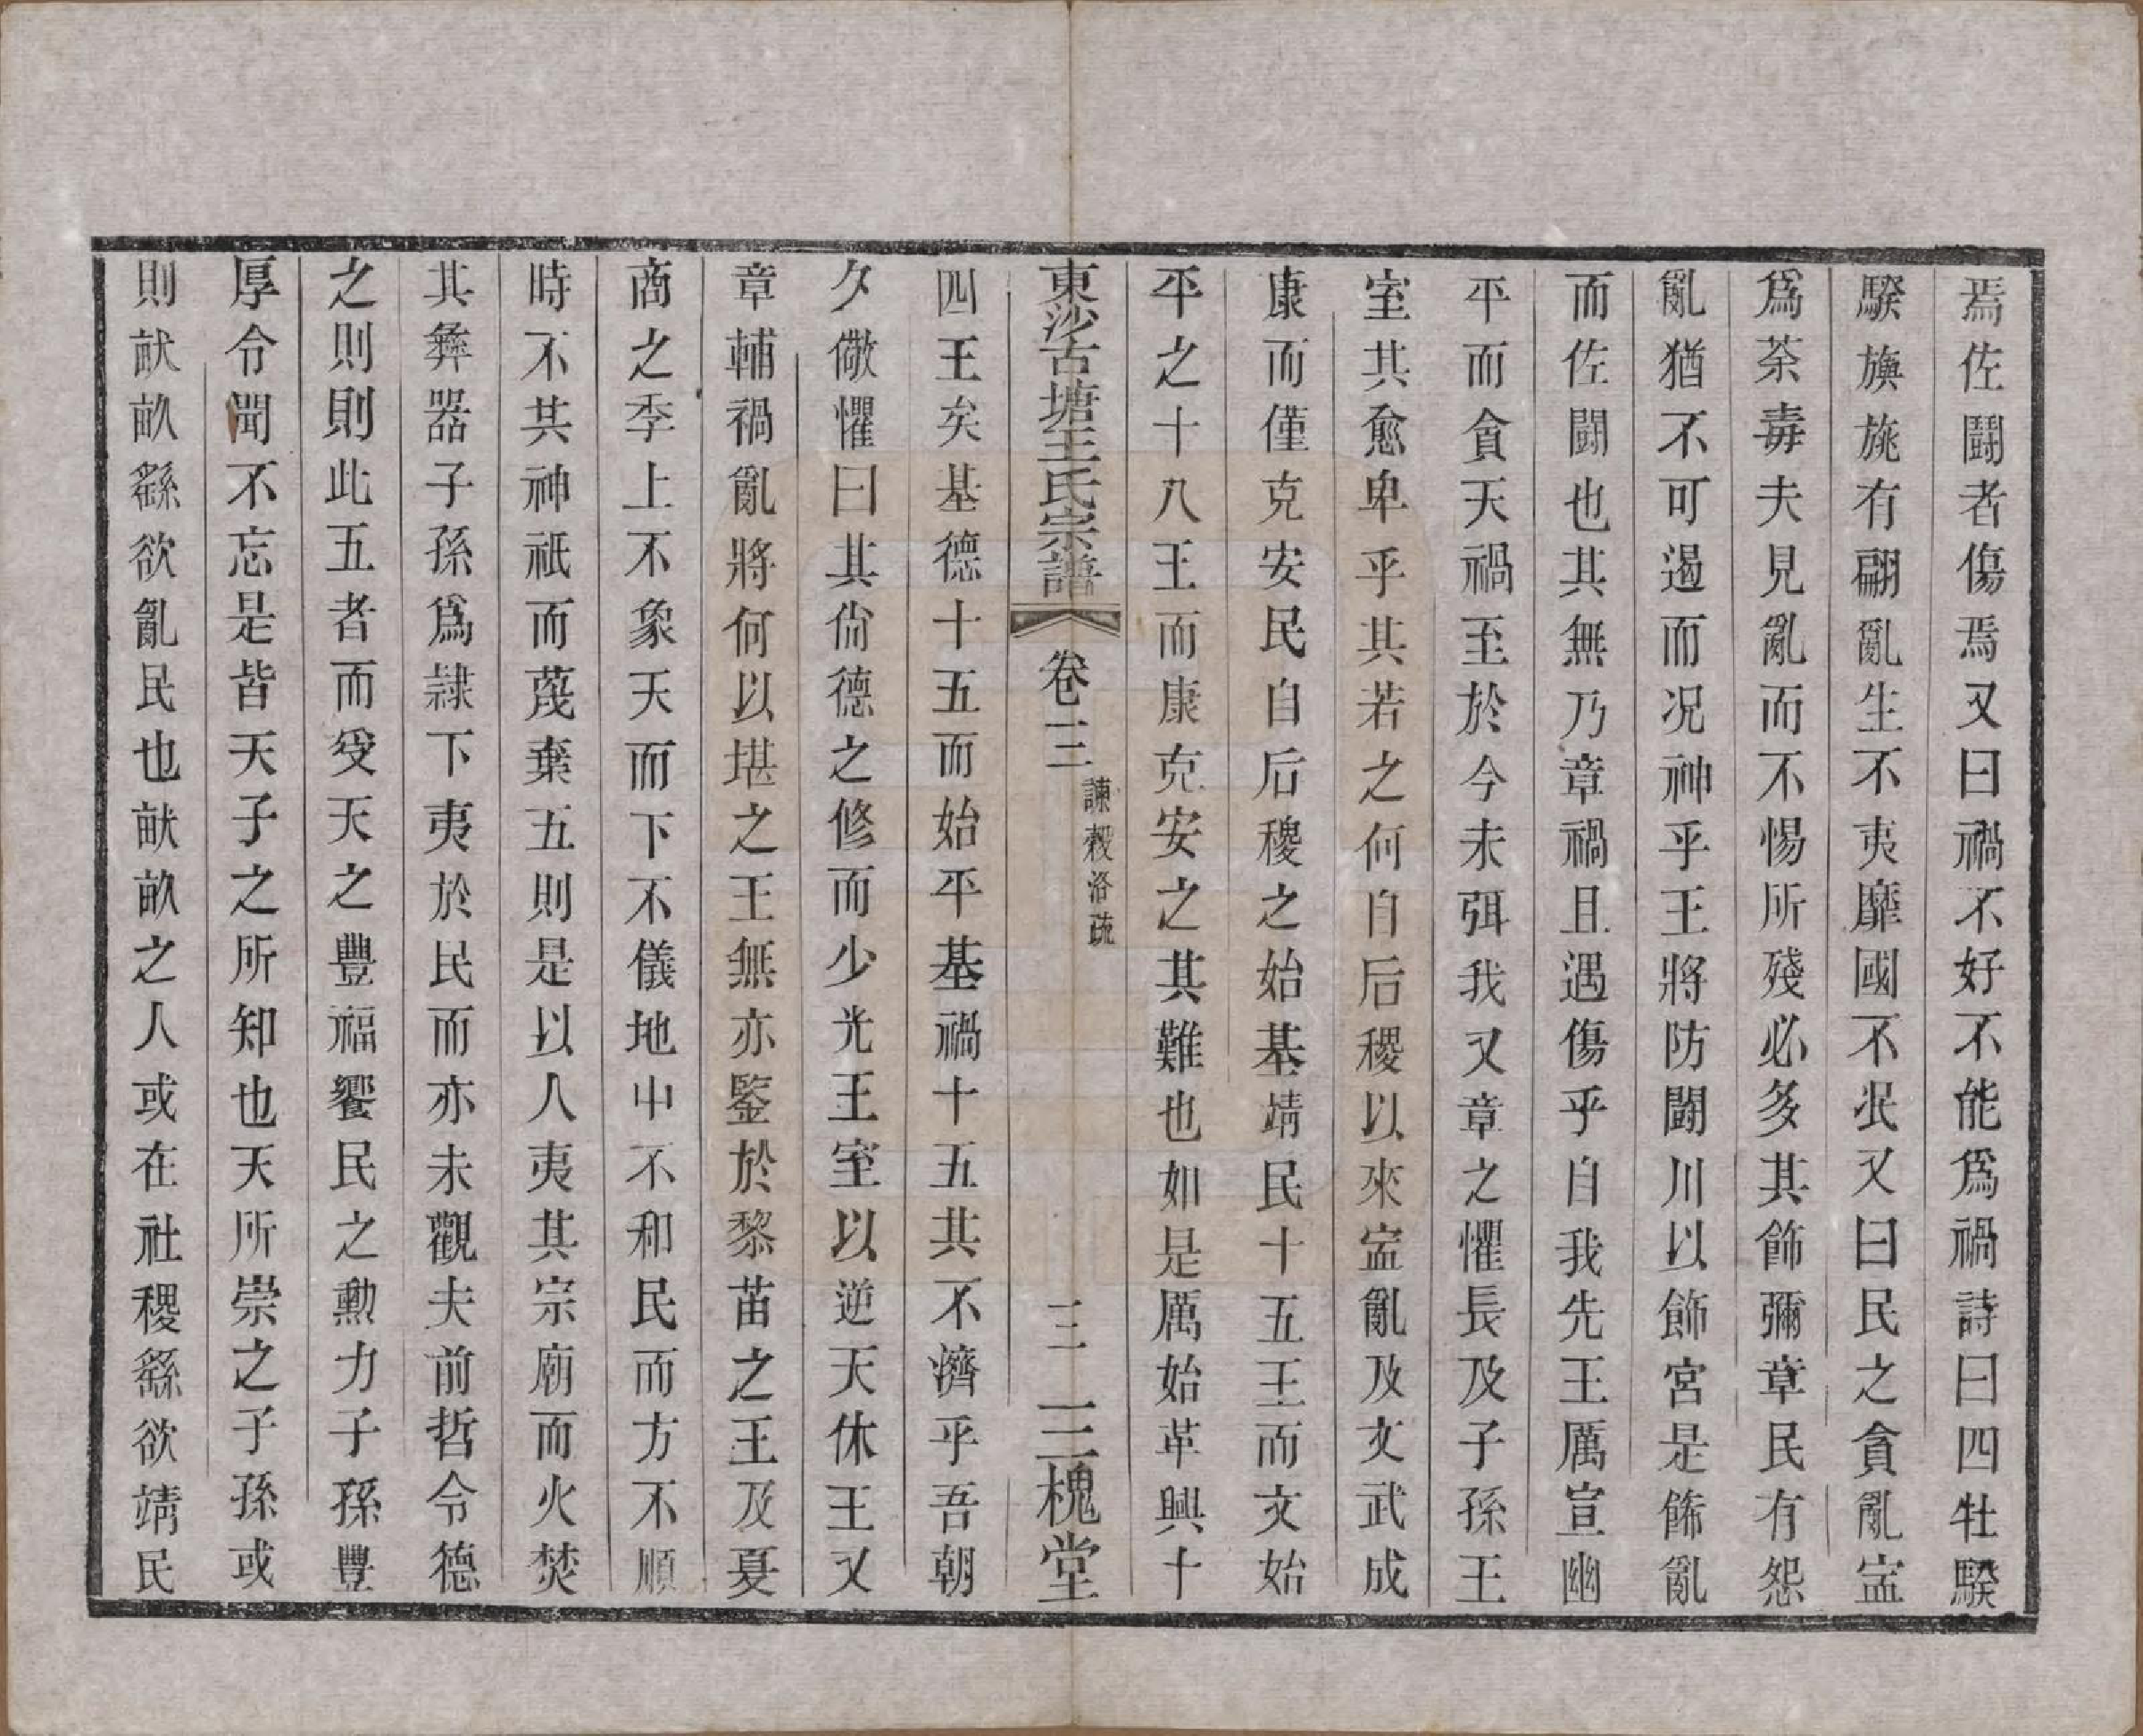 焉佐鬬者傷焉又曰禍不好不能爲禍詩曰四牡騤
騤旟旐有翩亂生不夷靡國不泯又曰民之貪亂寍
爲荼毒夫見亂而不惕所殘必多其飾彌章民有怨
亂猶不可遏而况神乎王將防鬬川以飾宮是餙亂
而佐鬬也其無乃章禍且遇傷乎自我先王厲宣幽
平而貪天禍至於今未弭我又章之懼長及子孫王
室其愈卑乎其若之何自后稷以來寍亂及文武成
康而僅克安民自后稷之始基靖民十五王而文始
平之十八王而康克安之其難也如是厲始革興十
東沙古塘王氏宗譜 卷一二 諫榖洛疏 三二 三槐堂
四王矣基德十五而始平基禍十五其不濟乎吾朝
夕儆懼曰其尙德之修而少光王室以逆天休王又
章輔禍亂將何以堪之王無亦鑒於黎苗之王及夏
商之季上不象天而下不儀地中不和民而方不順
時不共神祇而蔑棄五則是以人夷其宗廟而火焚
其彝器子孫爲隷下夷於民而亦未觀夫前哲令德
之則則此五者而受天之豐福饗民之勳力子孫豐
厚令聞不忘是皆天子之所知也天所崇之子孫或
則畎畝繇欲亂民也畎畝之人或在社稷繇欲靖民